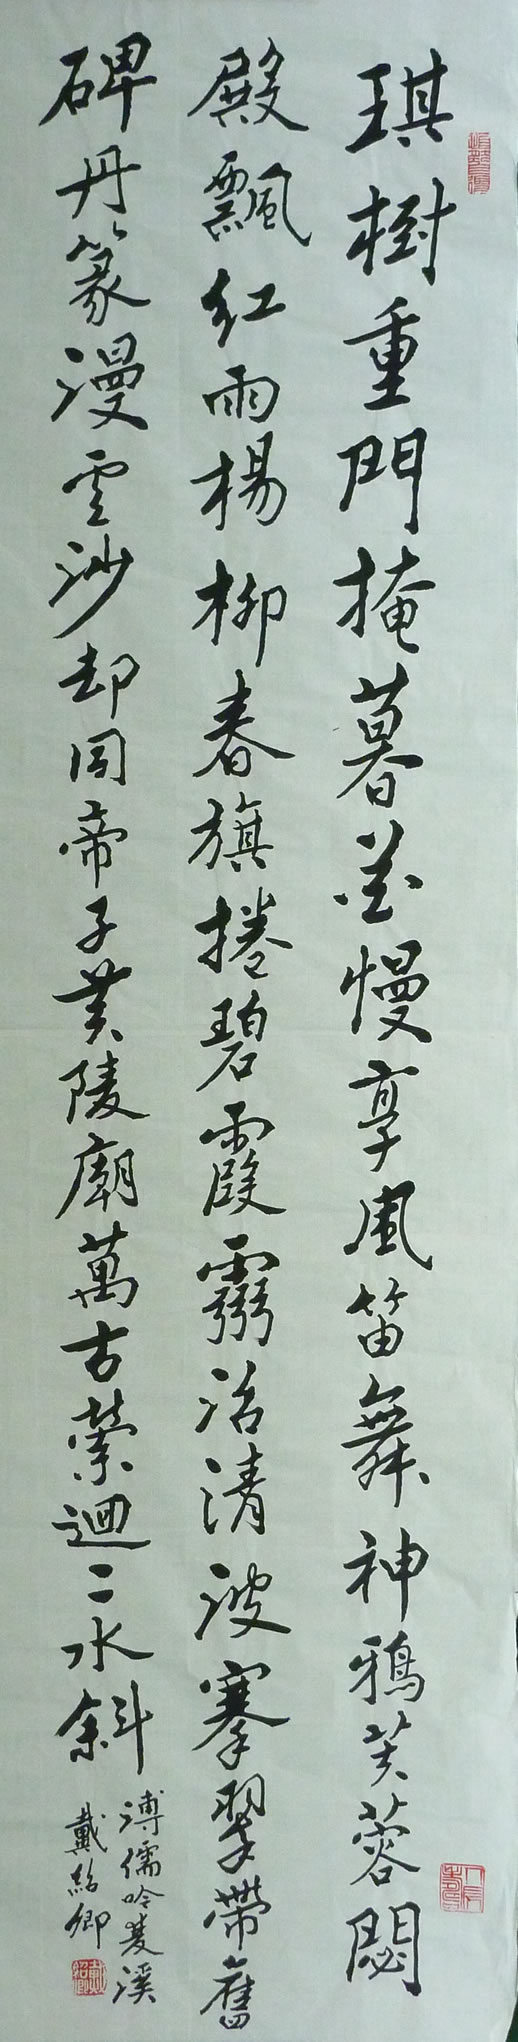 琪樹重門掩暮花慢享風笛舞神鴉芙蓉閟
殿飄紅雨楊柳春旗捲碧霞霸沿清波搴翠帶舊
碑丹篆漫雲沙却同帝子黃陵廟萬古縈迴二水斜
溥儒吟夌溪
戴紹卿